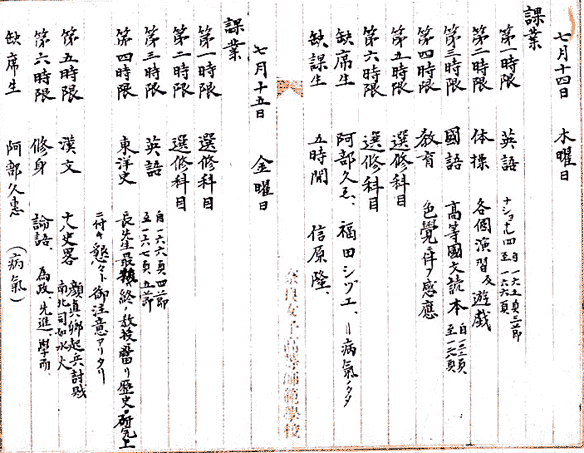 七月十四日 木曜日
課業
第一時限 英語 ナショナル四 自一六五頁三節 至一六六頁
第二時限 体操 各個演習及遊戯
第三時限 國語 高等國文読本
第四時限 教育 色覺ニ伴フ感應
第五時限 選修科目
第六時限 選修科目
缺席生 阿部久ゑ、福田シヅエ、病氣ノタメ
缺課生 五時間 信原隆、
奈良女子高等師範學校
七月十五日 金曜日
課業
第一時限 選修科目
第二時限 選修科目
第三時限 英語 自一六六頁四節 至一六七頁五節
第四時限 東洋史 長先生最終ノ教授ニ當リ歴史ノ研究上
ニ付キ懇々ト御注意アリタリ
第五時限 漢文 十八史畧 顏真卿起兵討賊 南北司如水火
第六時限 修身 論語、為政、先進、學而、
缺席生 阿部久惠 (病氣)